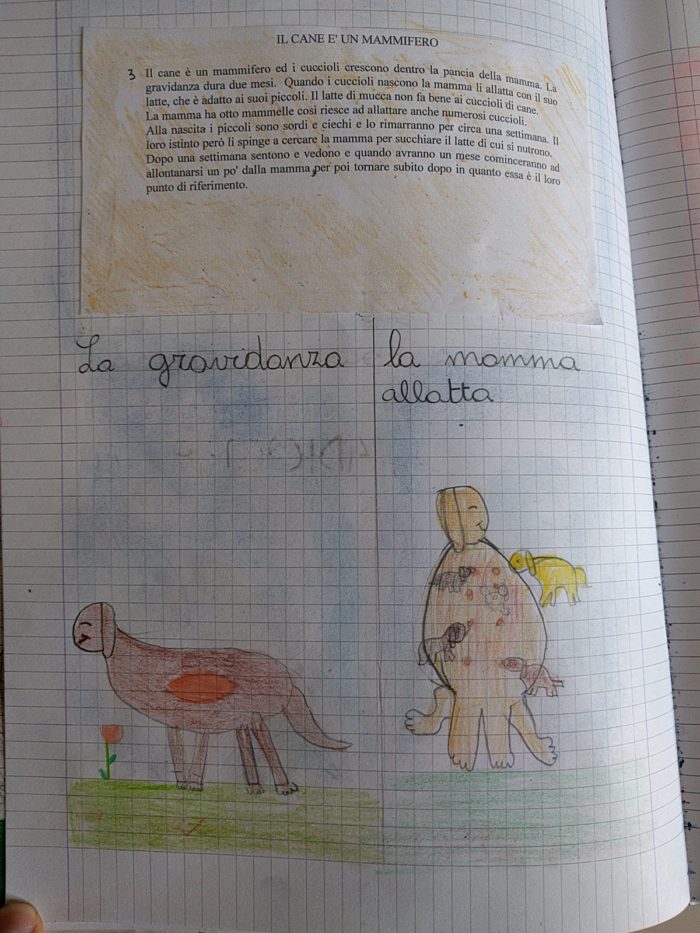 IL CANE E' UN MAMMIFERO
3 Il cane è un mammifero ed i cuccioli crescono dentro la pancia della mamma. La
gravidanza dura due mesi. Quando i cuccioli nascono la mamma li allatta con il suo
latte, che è adatto ai suoi piccoli. Il latte di mucca non fa bene ai cuccioli di cane.
La mamma ha otto mammelle così riesce ad allattare anche numerosi cuccioli.
Alla nascita i piccoli sono sordi e ciechi e lo rimarranno per circa una settimana. Il
loro istinto però li spinge a cercare la mamma per succhiare il latte di cui si nutrono.
Dopo una settimana sentono e vedono e quando avranno un mese cominceranno ad
allontanarsi un po' dalla mamma, per poi tornare subito dopo in quanto essa è il loro
punto di riferimento.
La gravidanza
la mamma
allatta